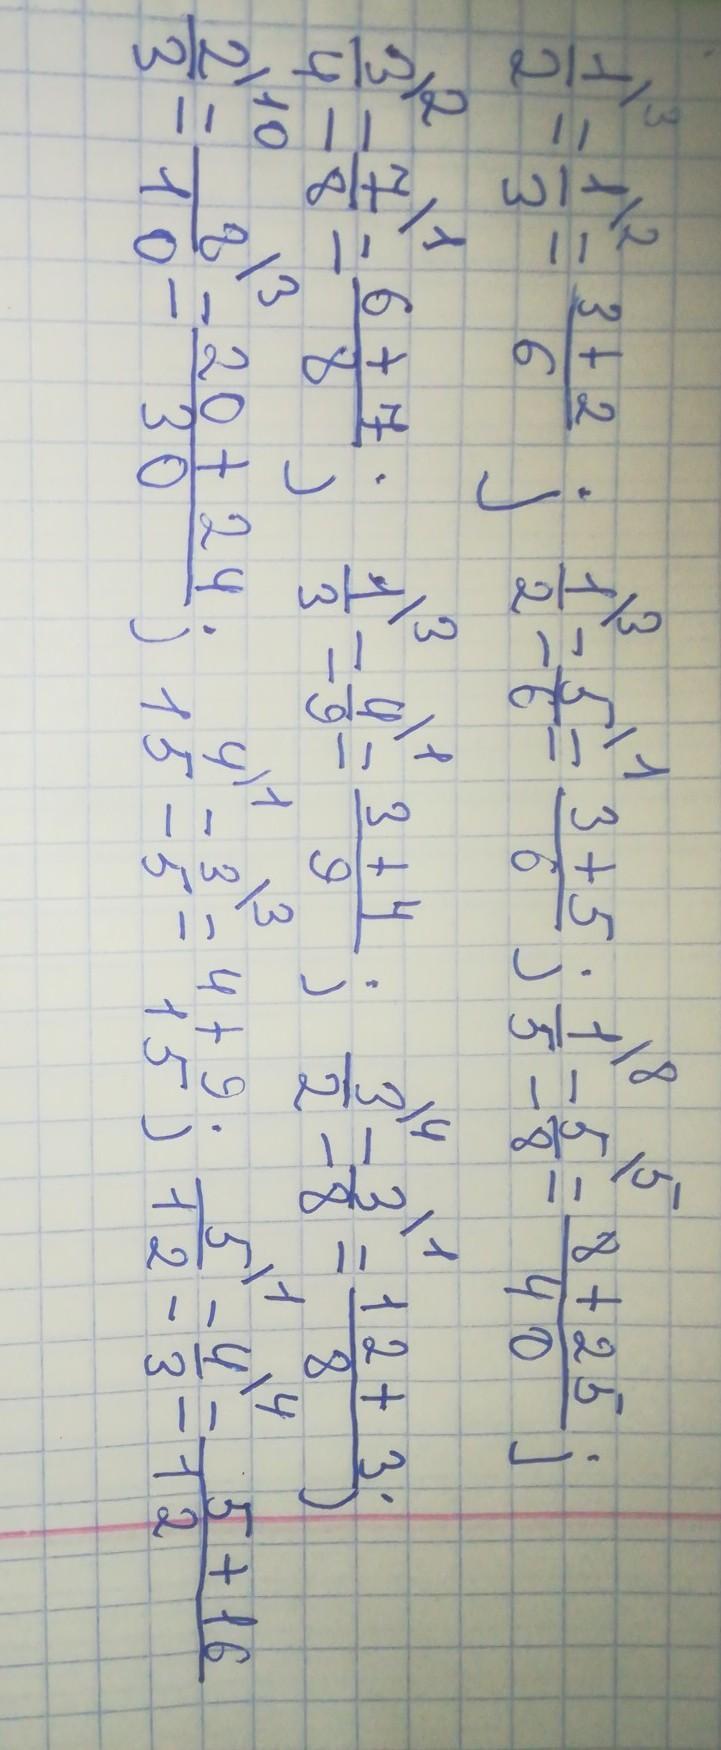 1/2\3 = 1/3\2 = 3+2/6 ; 1/2\3 = 5/6\1 = 3+5/6 ; 1/5\8 = 5/8\5 = 8+25/40 ;
3/4\2 = 7/8\1 = 6+7/8 ; 1/3\3 = 4/9\1 = 3+4/9 ; 3/2\4 = 3/8\1 = 12+3/8 ;
2/3\10 = 8/10\3 = 20+24/30 ; 4/15\1 = 3/5\3 = 4+9/15 ; 5/12\1 = 4/3\4 = 5+16/12